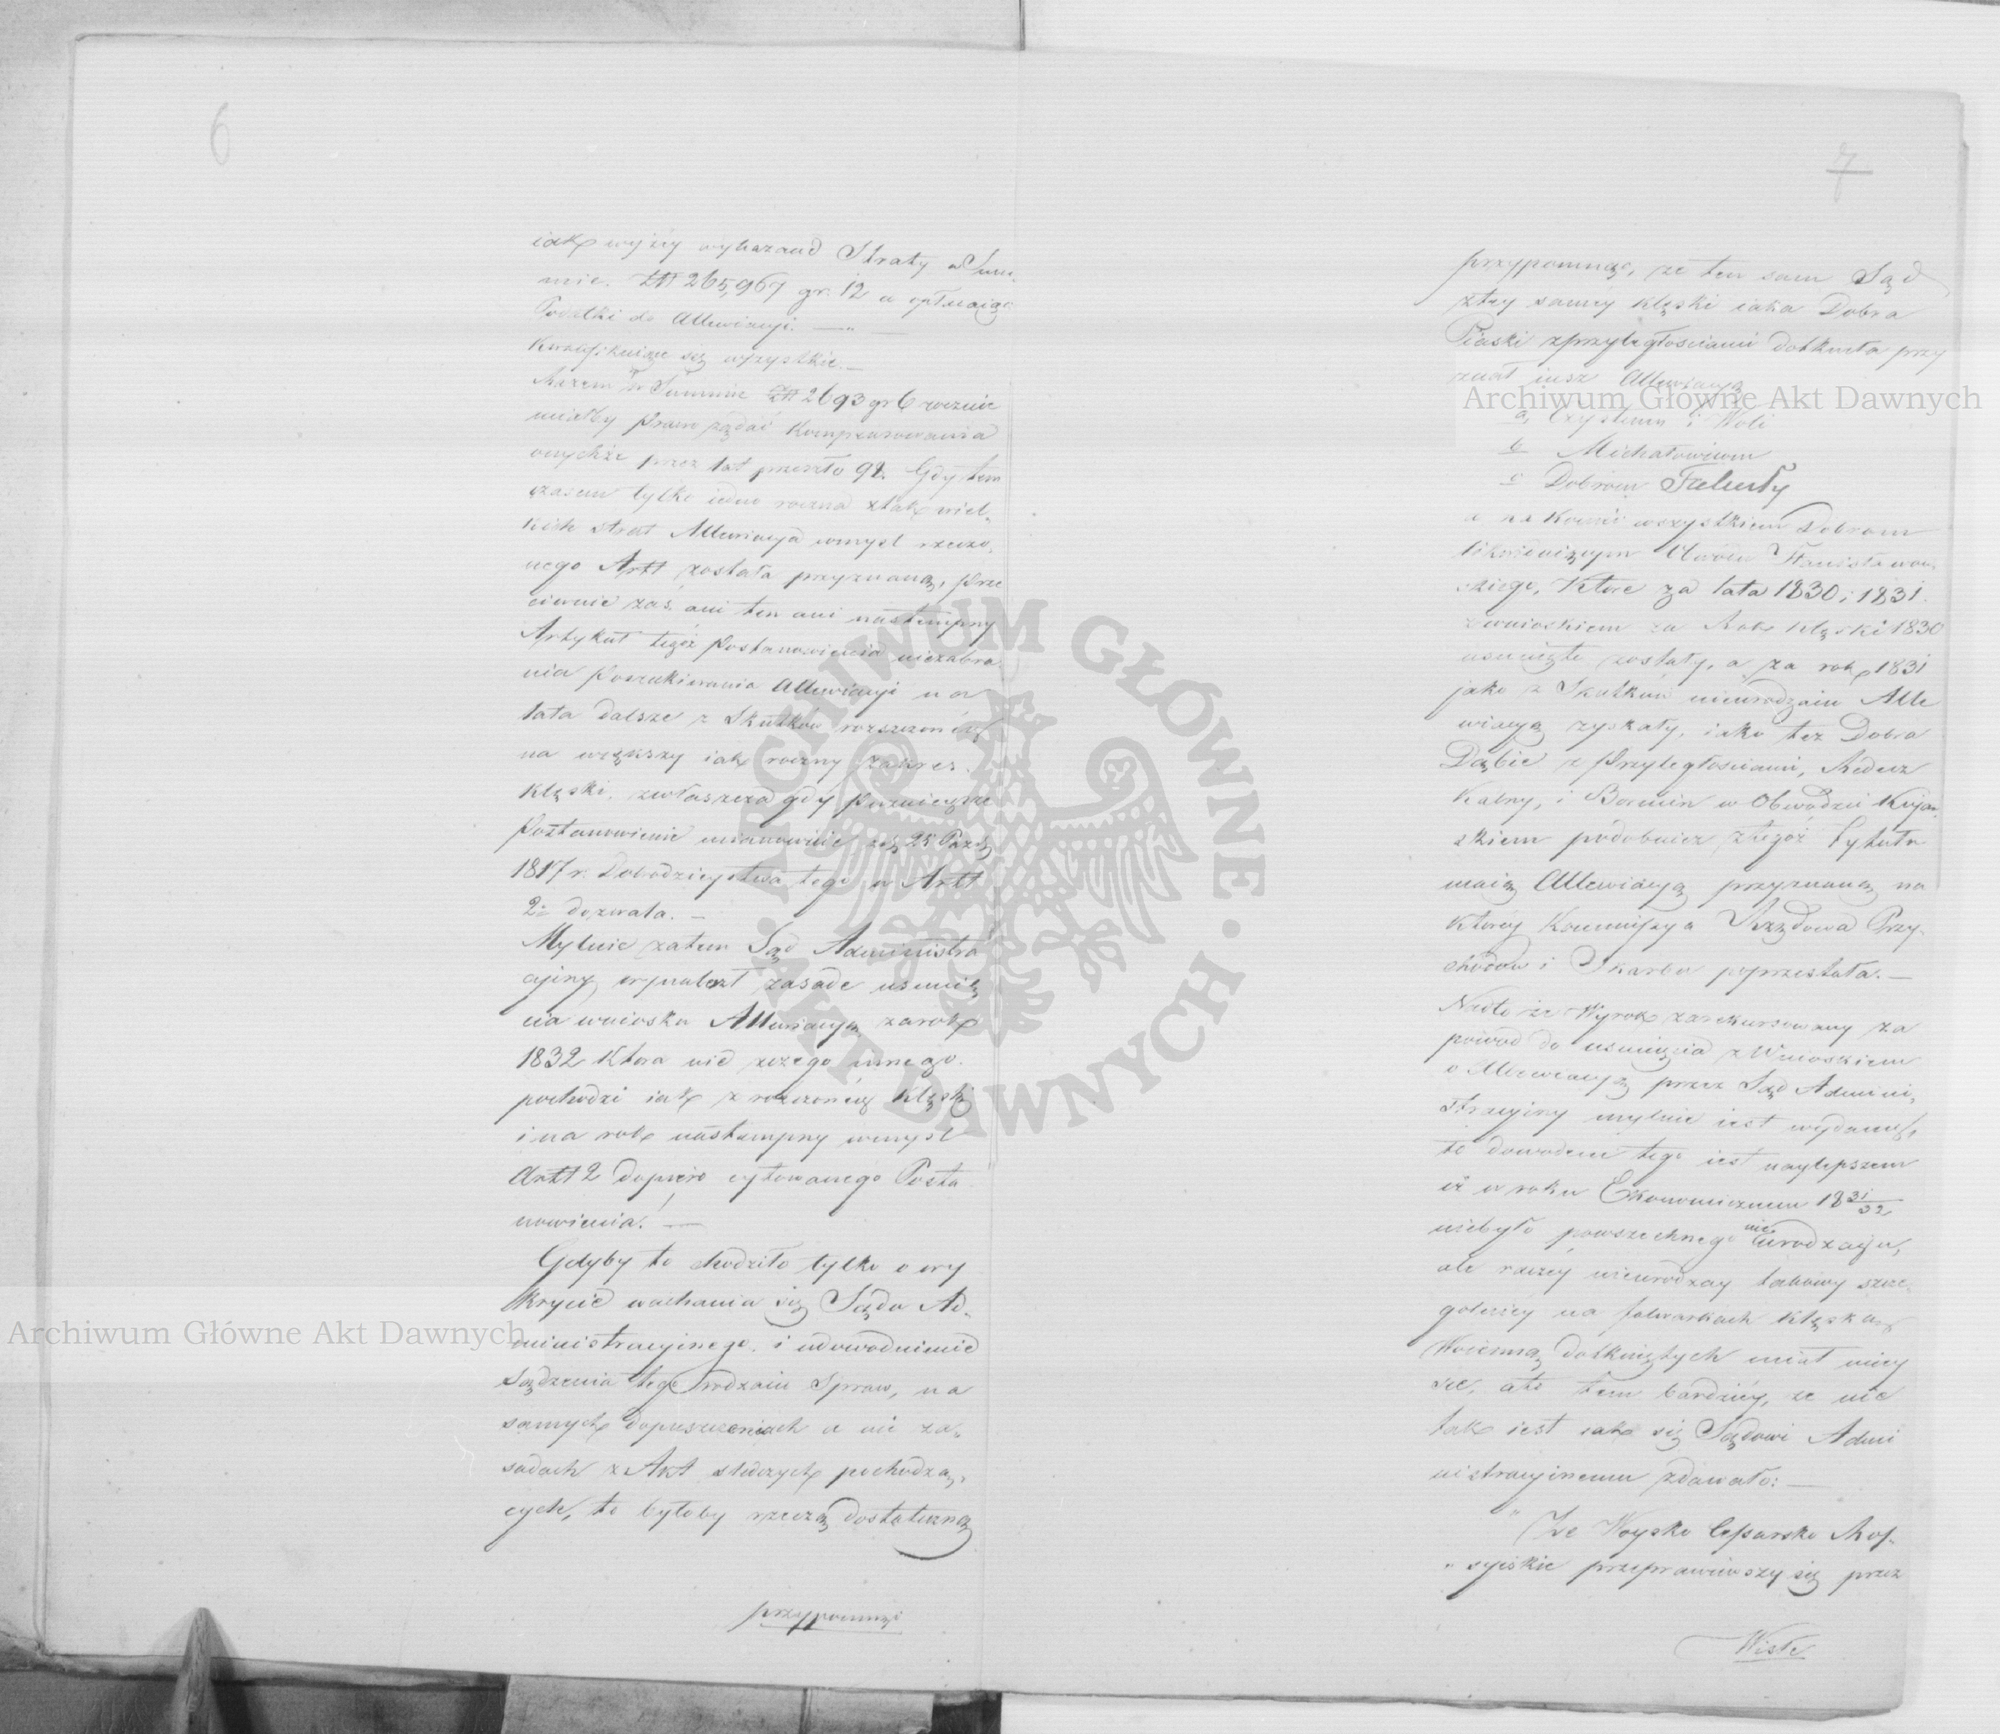 6
iak wyżéy wykazano Straty w Sum
mie. Złł 265,967 gr. 12 a opłacaiąc
Podatki do Allewiacyi. — " —
Kwalifikuiące się wszystkie. —
Razem w Summie Złł 2693 gr 6 rocznie
mieliby prawo żądać kompensowania
onychże przez lat przeszło 98. Gdy tem
czasem tylko iedno roczna z tak wiel„
kich strat Allewiacya wmysl rzeczo„
nego Artt została przyznaną, prze
ciwnie zaś, ani ten ani następny
Artykuł tegoż Postanowienia niezabra
nia Poszukiwania Allewiacyi na
lata dalsze z Skutków
na większy iak roczny zakres
klęski, zwłaszcza gdy Pozniejsze
Postanowienie mianowicie z 25 Paźd
1817 r. Dobrodzieystwa tego w Artt
2im dozwala. —
Mylnie zatem Sąd Administra
cyjny wynalazł zasadę usunię
cia wniosku Allewiacyą za rok
1832 która nie z czego innego
pochodzi iak z rzeczonéy Klęski
i na rok następny wmysl
Artt 2 dopiero cytowanego Posta
nowienia! —
Gdyby to chodziło tylko o wy
krycie wachania się Sądu Ad„
ministracyinego, i udowodnienie
Sądzenia tego rodzaiu Spraw, na
samych dopuszczeniach a nie za„
sadach z Akt śledczych pochodzą„
cych, to byłoby rzeczą dostateczną
przypomnąć
7
przypomnąć, że ten sam Sąd
z téy saméy klęski iaka Dobra
Piaski z przyległościami dotknęła przy
znał iusz Allewiacyą
a, Czystemu i Woli
b Michałowicom
c Dobrom Falenty
a na koniec wszystkiem Dobrom
likwiduiącym Obwodu Stanisławow„
skiego, które za lata 1830 i 1831.
z wnioskiem za Rok klęski 1830
usunięte zostały, a za rok 1831
jako z Skutków nieurodzaiu Alle
wiacyą zyskały, iako też Dobra
Dąbie z Przyległościami, Redecz
Kalny, i Bormin w Obwodzie Kujaw„
skiem podobnież z tegoż tytułu
maią Allewiacyą przyznaną na
któréy Kommissya Rządowa Przy„
chodów i Skarbu poprzestała. —
Nadto że Wyrok zarekursowany za
powód do usunięcia z Wnioskiem
o Allewiacyą przez Sąd Admini„
stracyiny mylnie iest wydany,
to dowodem tego iest naylepszem
iż w roku Ekonomicznem 18 31/32
niebyło powszechnego nieurodzayu,
ale raczéy nieurodzay takowy szcze„
golniéy na folwarkach Klęską
Woienną dotkniętych miał miey
sce, a to tem bardziéy, że nie
tak iest iak się Sądowi Admi
nistracyinemu zdawało: —
" Że Woysko Cesarsko Ros„
" syiskie przeprawiwszy się przez
Wisłę
ARCHIWUM GŁÓWNE · AKT DAWNYCH ·
Archiwum Główne Akt Dawnych
Archiwum Główne Akt Dawnych